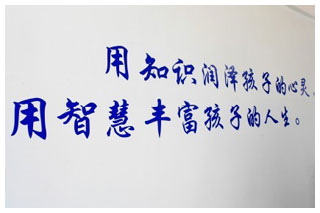 用知识润泽孩子的心灵，
用智慧丰富孩子的人生。